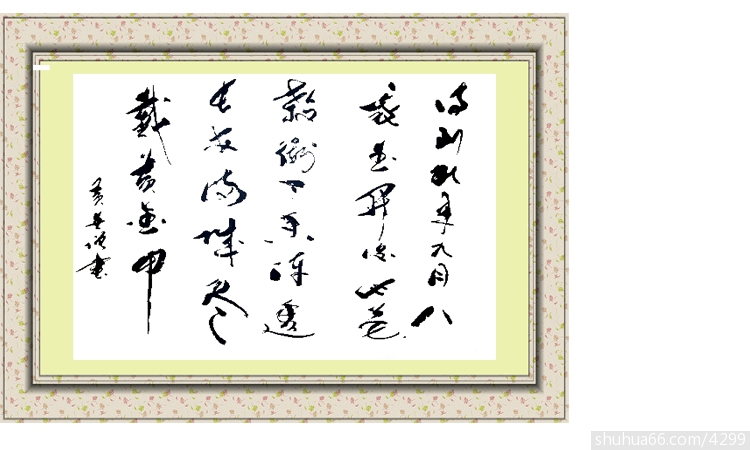 待到秋来九月八
我花開后百花
殺衝天香陣透
長安满城尽
戴黄金甲
黄 书
shuhua66.com/4299